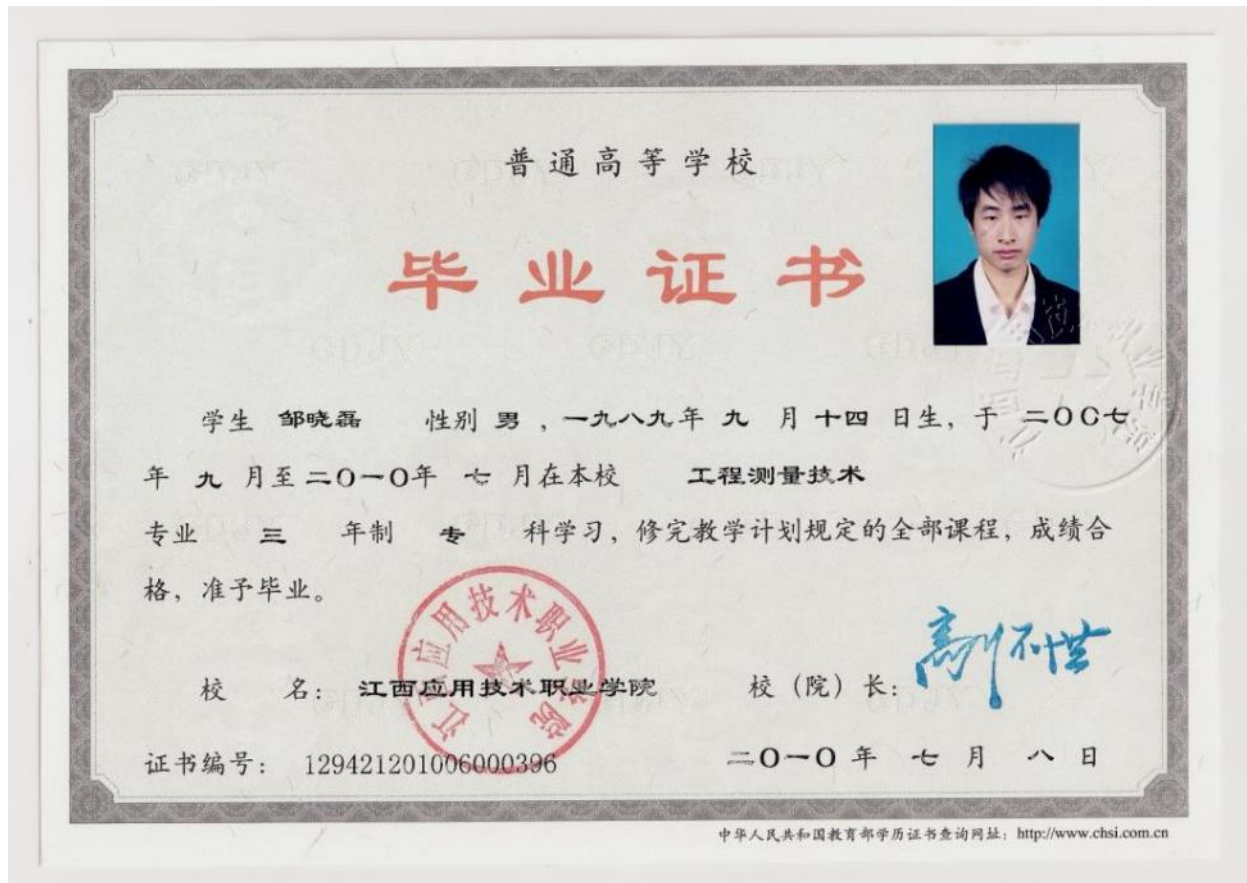 普通高等学校
毕业证书
学生 邹晓磊 性别 男 ，一九八九年 九 月 十四 日生，于 二〇〇七
年 九 月至二〇一〇年 七 月在本校 工程测量技术
专业 三 年制 专 科学习，修完教学计划规定的全部课程，成绩合
格，准予毕业。
江西应用技术职业学院
校 名： 江西应用技术职业学院 校（院）长：
证书编号： 129421201006000396 二〇一〇年 七 月 八 日
中华人民共和国教育部学历证书查询网址：http://www.chsi.com.cn